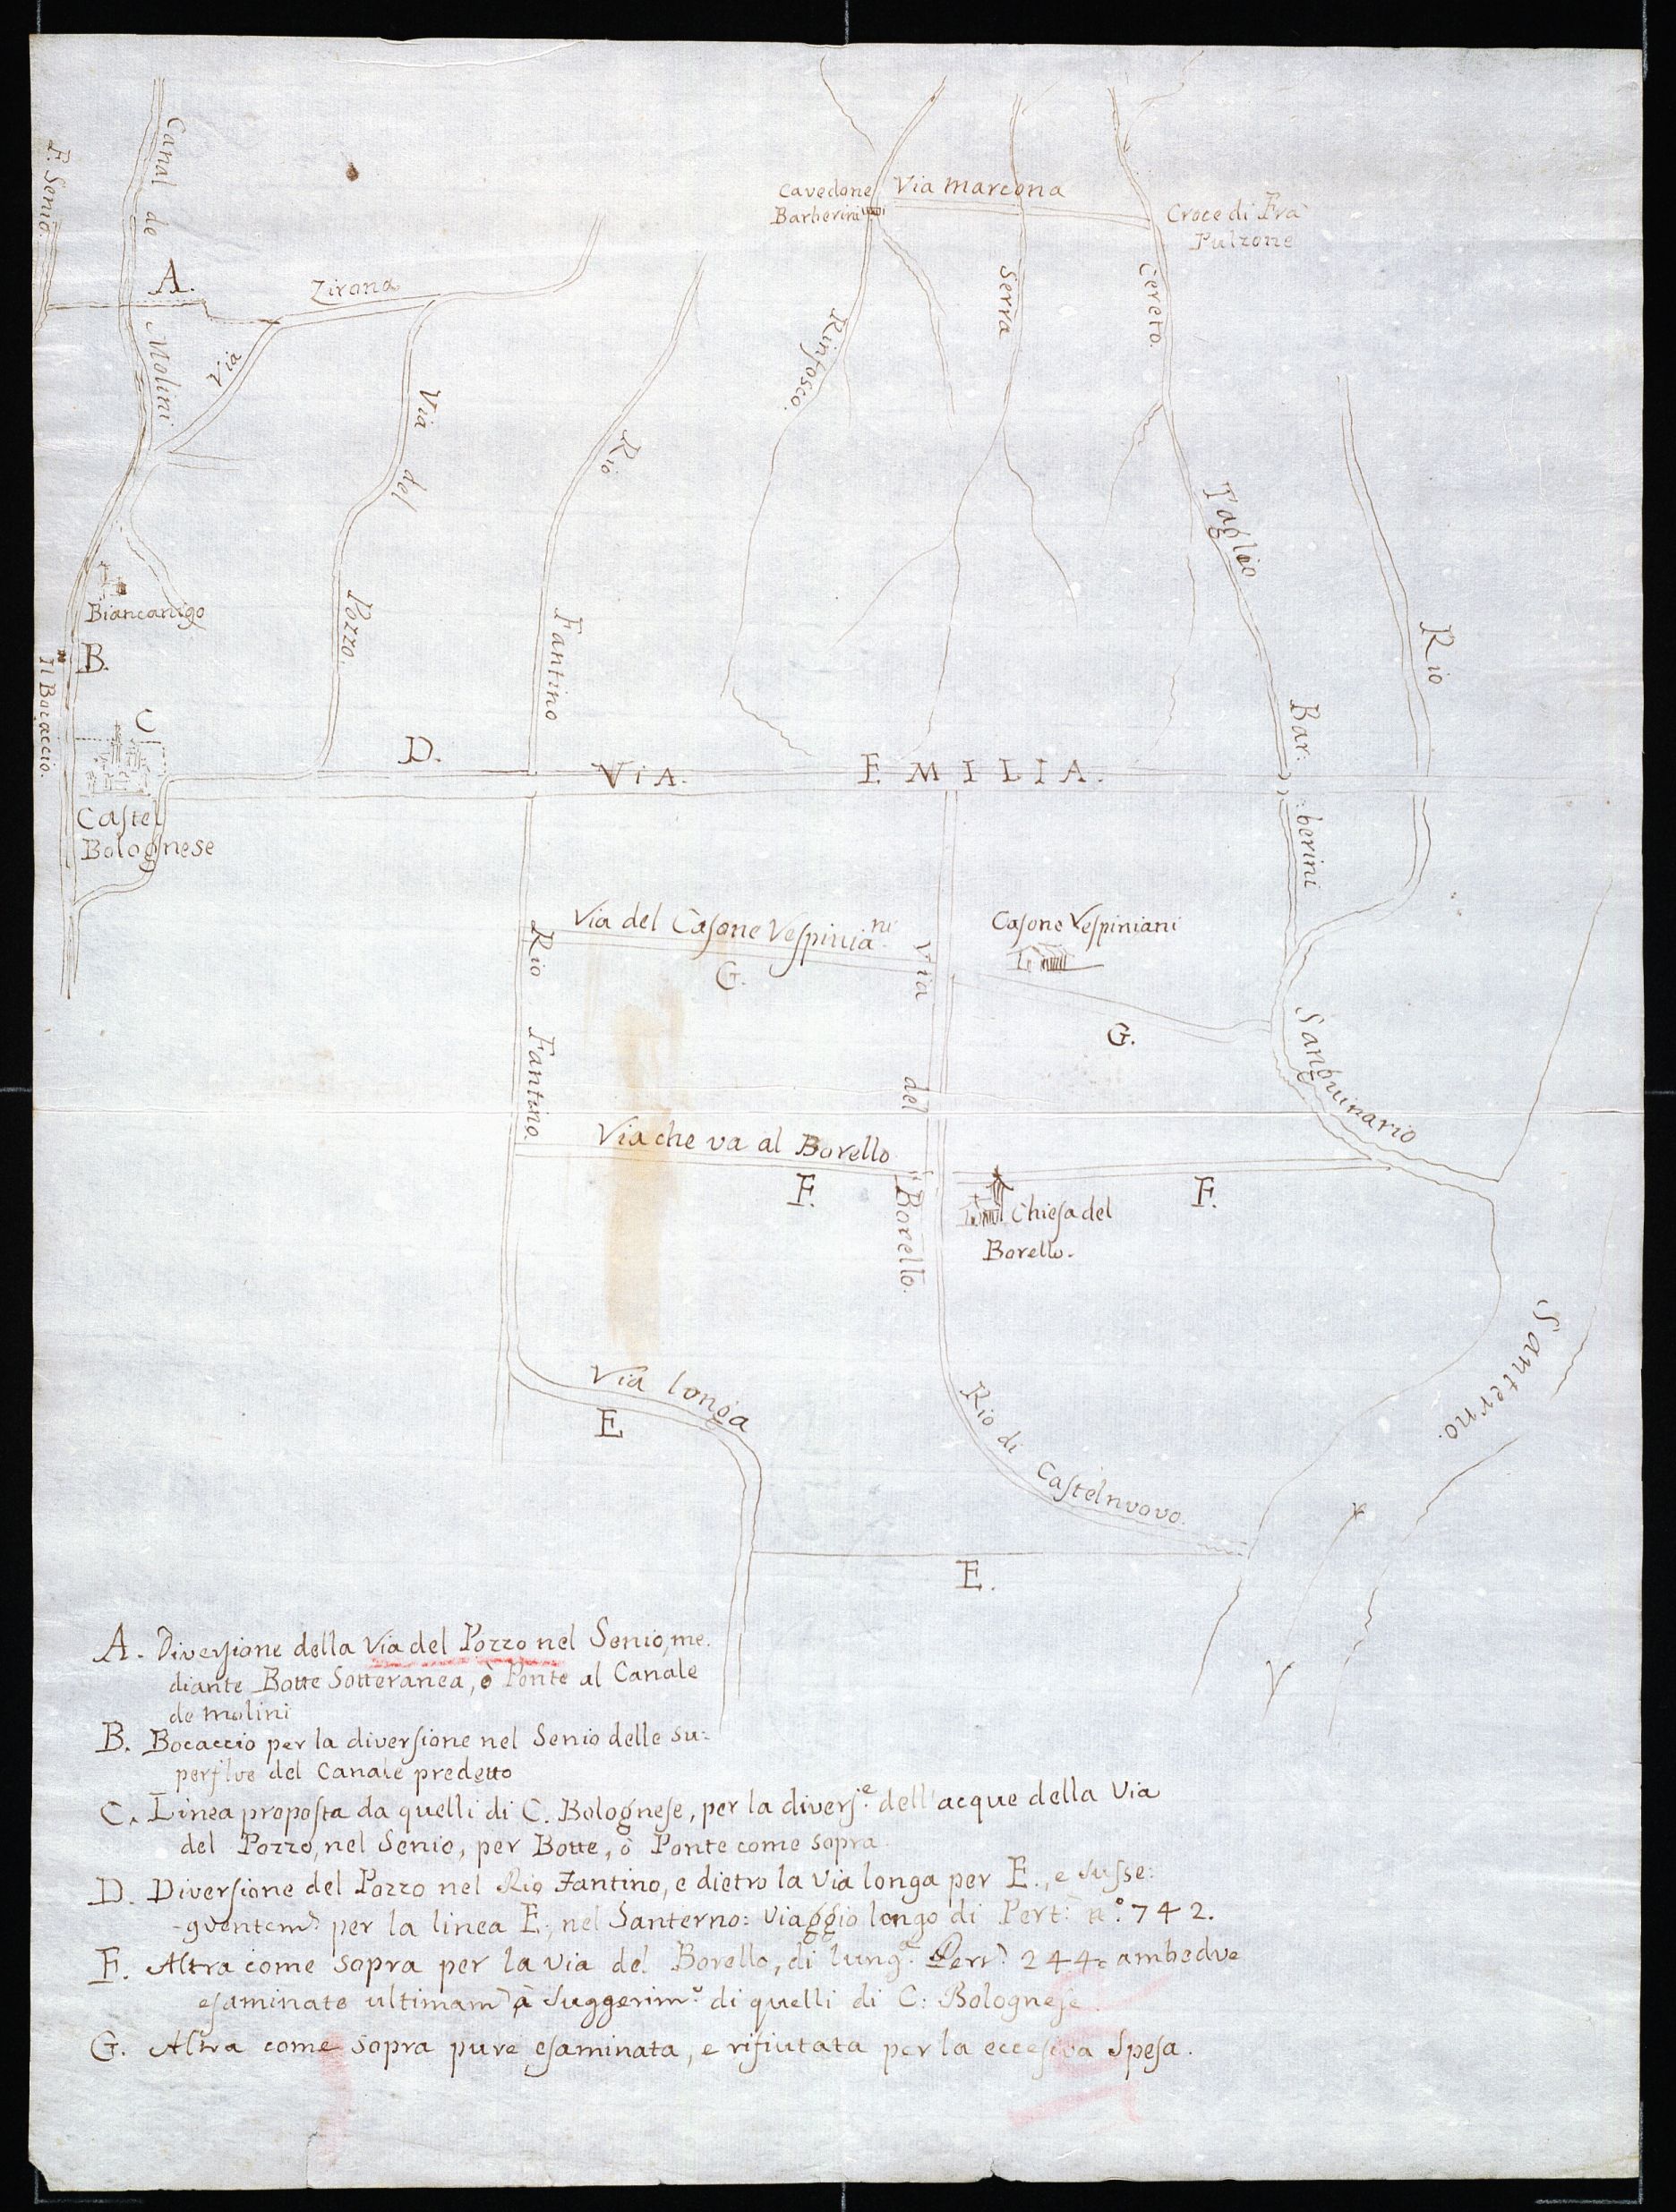 Canal de Molini
F. Senio.
A.
Via Zirona
Via del Pozzo.
Rio Fantino
Cavedone
Barberini
Via Marcona
Croce di Fra
Pulzone
Rinfosco.
Serra
Cereto.
Taglio Bar: :berini
Rio Sanguinario
Biancanigo
B.
Il Bocaccio.
C
Castel
Bolognese
D.
VIA. EMILIA.
Via del Casone Vespinia.ni
G.
Casone Vespiniani
G.
Rio Fantino.
Via del Borello.
Via che va al Borello
F.
F.
Chiesa del
Borello.
Via longa
E
Rio di Castelnuovo.
Santerno.
E.
A. Diversione della Via del Pozzo nel Senio, me.
diante Botte Sotteranea, ò Ponte al Canale
de molini
B. Bocaccio per la diversione nel Senio delle su:
perflue del Canale predetto
C. Linea proposta da quelli di C. Bolognese, per la divers.e dell'acque della Via
del Pozzo, nel Senio, per Botte, ò Ponte come sopra
D. Diversione del Pozzo nel Rio Fantino, e dietro la Via longa per E., e susse:
-guentem.e per la linea E; nel Santerno: Viaggio longo di Pert: n.o 742.
F. Altra come sopra per la Via del Borello, di lung.a Pert. 244: ambedue
esaminate ultimam. à Suggerim.o di quelli di C: Bolognese
G. Altra come sopra pure esaminata, e rifiutata per la eccesiva Spesa.